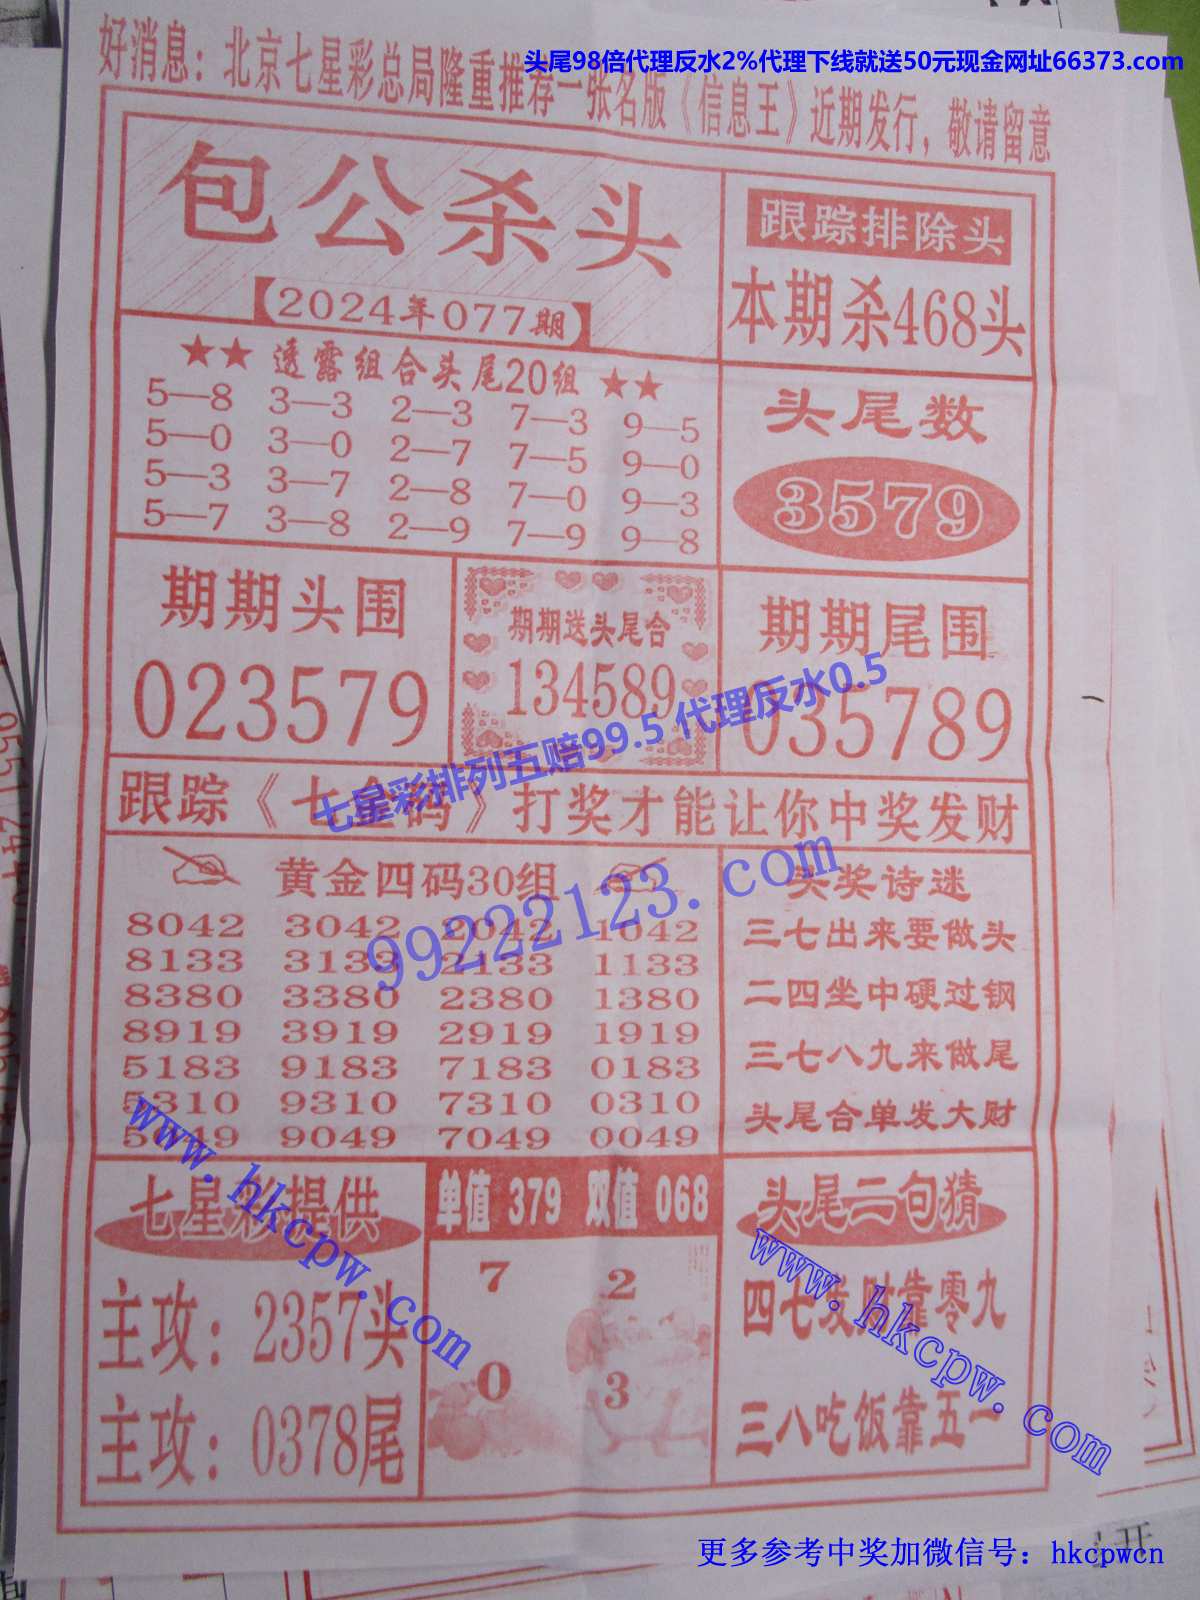 头尾98倍代理反水2%代理下线就送50元现金网址66373.com
好消息：北京七星彩总局隆重推荐一张名版《信息王》近期发行，敬请留意
包公杀头
【2024年077期】
跟踪排除头
本期杀468头
★★ 透露组合头尾20组 ★★
5—8 3—3 2—3 7—3 9—5
5—0 3—0 2—7 7—5 9—0
5—3 3—7 2—8 7—0 9—3
5—7 3—8 2—9 7—9 9—8
头尾数
3579
期期头围
023579
期期送头尾合
134589
期期尾围
035789
七星彩排列五赔99.5 代理反水0.5
跟踪《七全码》打奖才能让你中奖发财
黄金四码30组
8042 3042 2042 1042
8133 3133 2133 1133
8380 3380 2380 1380
8919 3919 2919 1919
5183 9183 7183 0183
5310 9310 7310 0310
5049 9049 7049 0049
99222123.com
头奖诗迷
三七出来要做头
二四坐中硬过钢
三七八九来做尾
头尾合单发大财
七星彩提供
主攻：2357头
主攻：0378尾
www.hkcpw.com
单值 379 双值 068
7 2
0 3
头尾二句猜
四七发财靠零九
三八吃饭靠五一
www.hkcpw.com
更多参考中奖加微信号：hkcpwcn